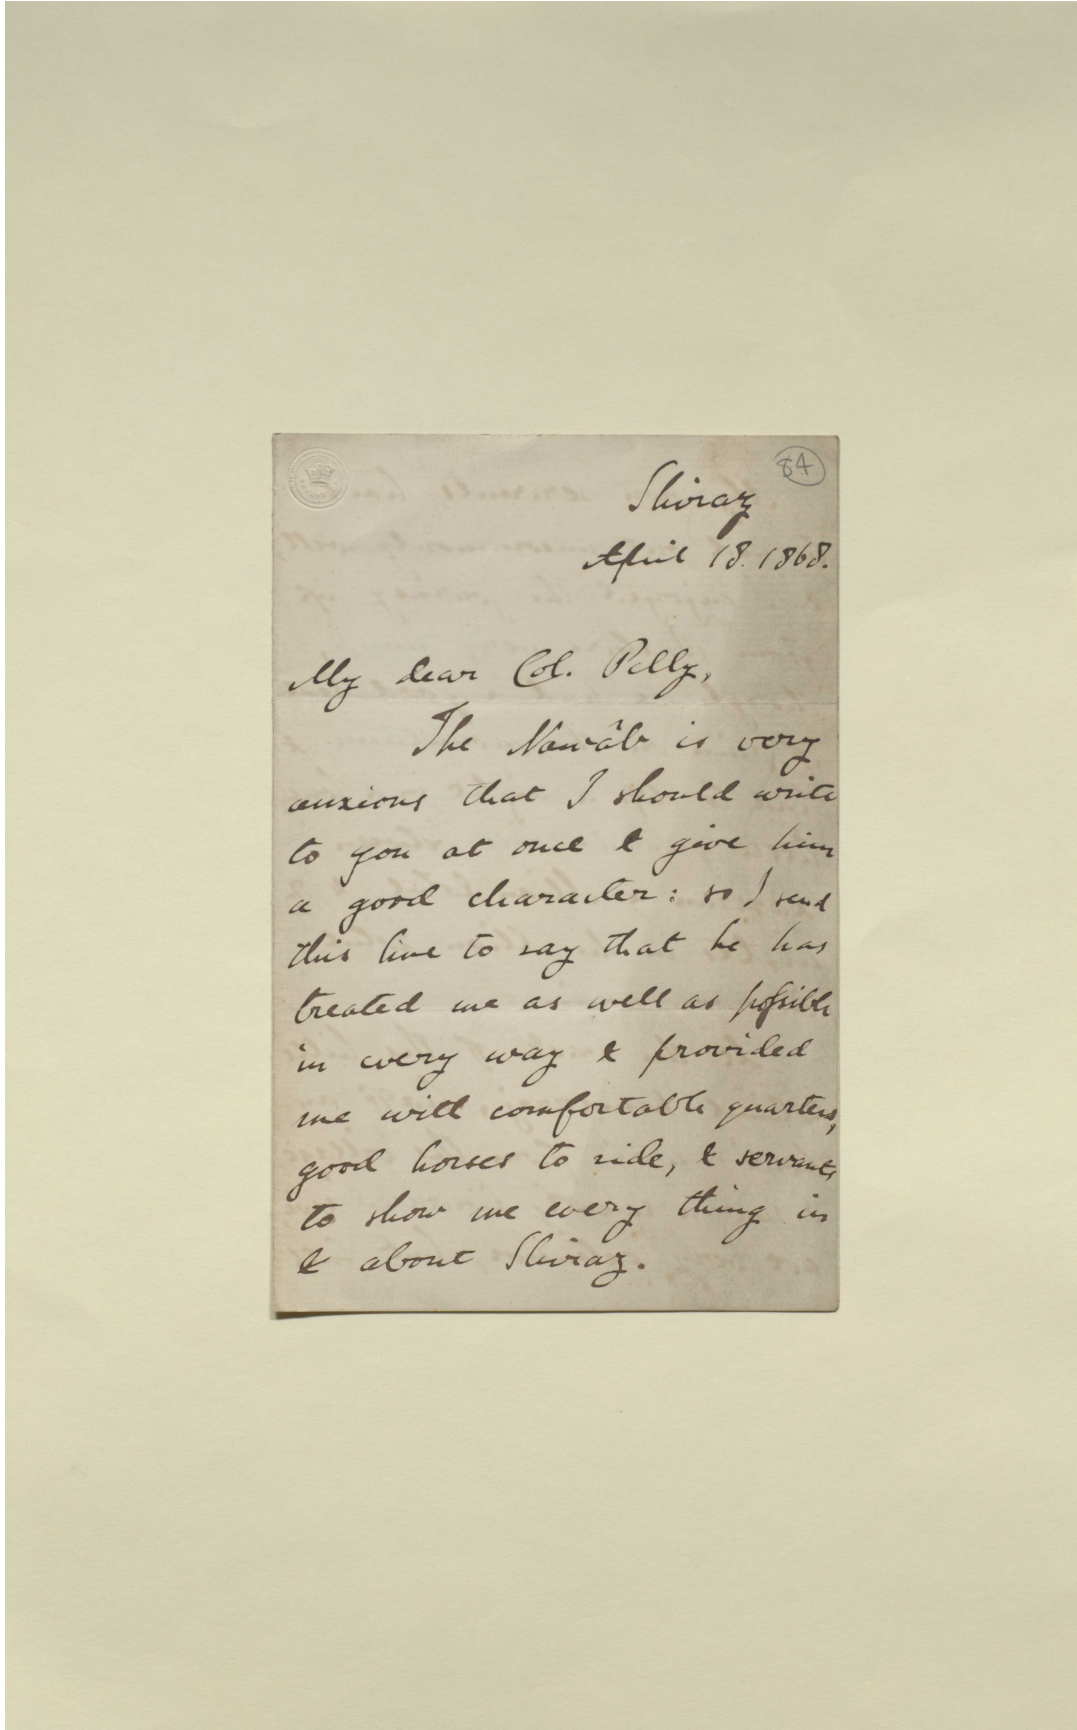 84
Shiraz
April 18. 1868.
My dear Col. Pelly,
The Nawâb is very
anxious that I should write
to you at once & give him
a good character: so I send
this line to say that he has
treated me as well as possible
in every way & provided
me with comfortable quarters,
good horses to ride, & servants
to show me every thing in
& about Shiraz.